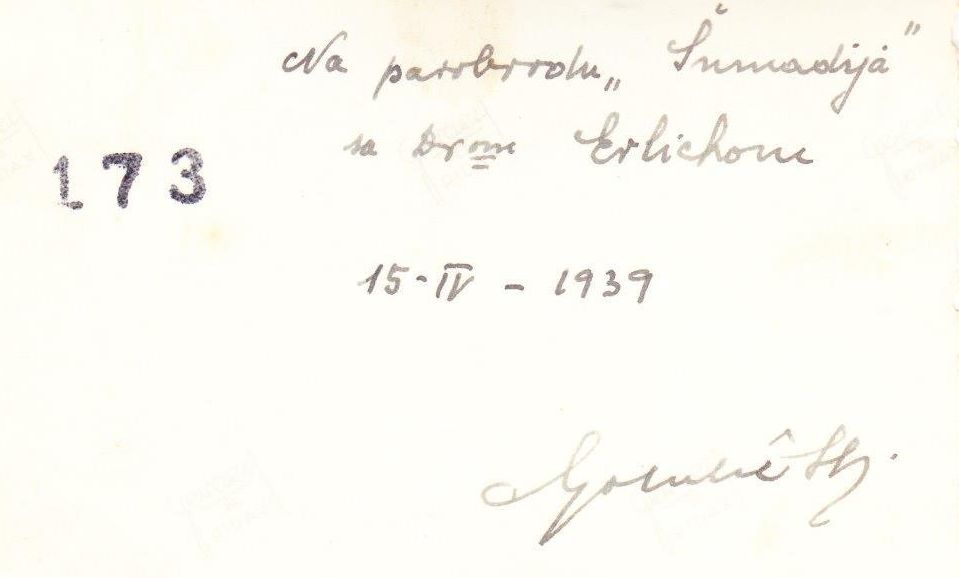 Na parobrodu „Šumadija"
sa Drom Erlichom
173
15-IV-1939